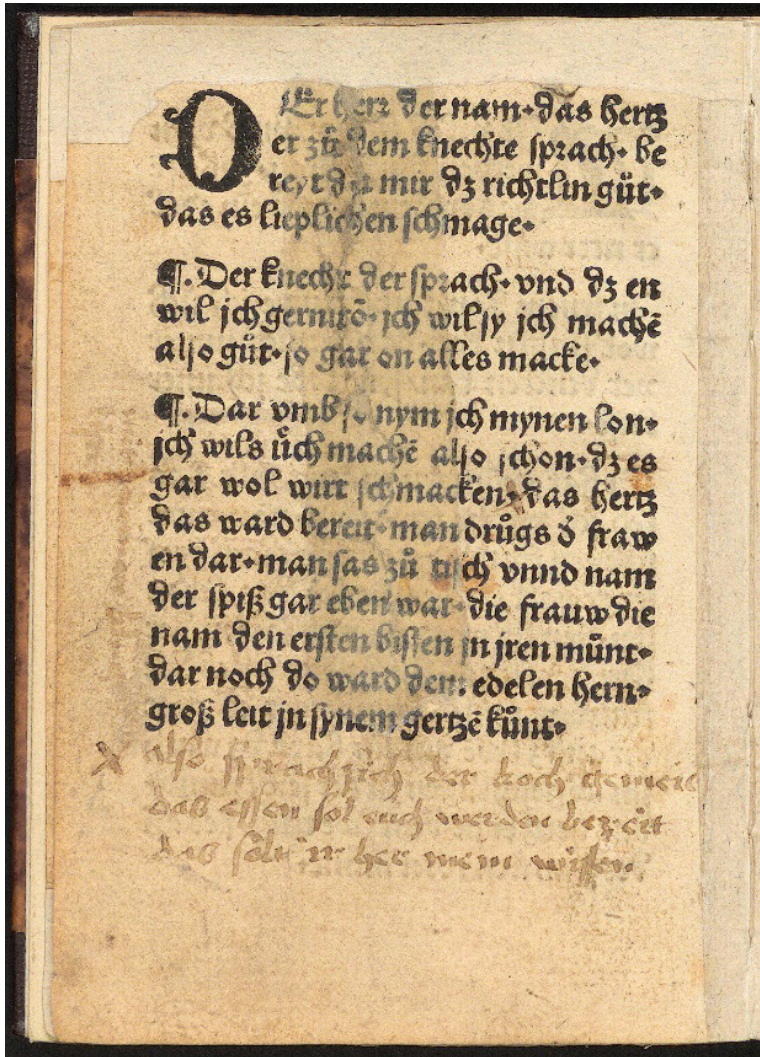 DEr herr der nam· das hertz
er zuͦ dem knechte sprach· be
reyt du mir dz richtlin guͤt·
das es lieplichen schmage·
¶. Der knecht der sprach· vnd dz en
wil jch gern tõ· jch wil sy jch machẽ
also guͤt· so gar on alles macke·
¶. Dar vmb so nym jch mynen lon·
jch wils uͤch machẽ also schon· dz es
gar wol wirt schmacken· das hertz
das ward bereit· man druͦgs d̊ fraw
en dar· man sas zuͦ tisch vnnd nam
der spiß gar eben war· die frauw die
nam den ersten bissen jn jren muͦnt·
dar noch do ward dem edelen hern·
groß leit jn synem gertzẽ kuͦnt·
also sprach sich der koch
das essen sol euch werden
das solt ir her mein wissen